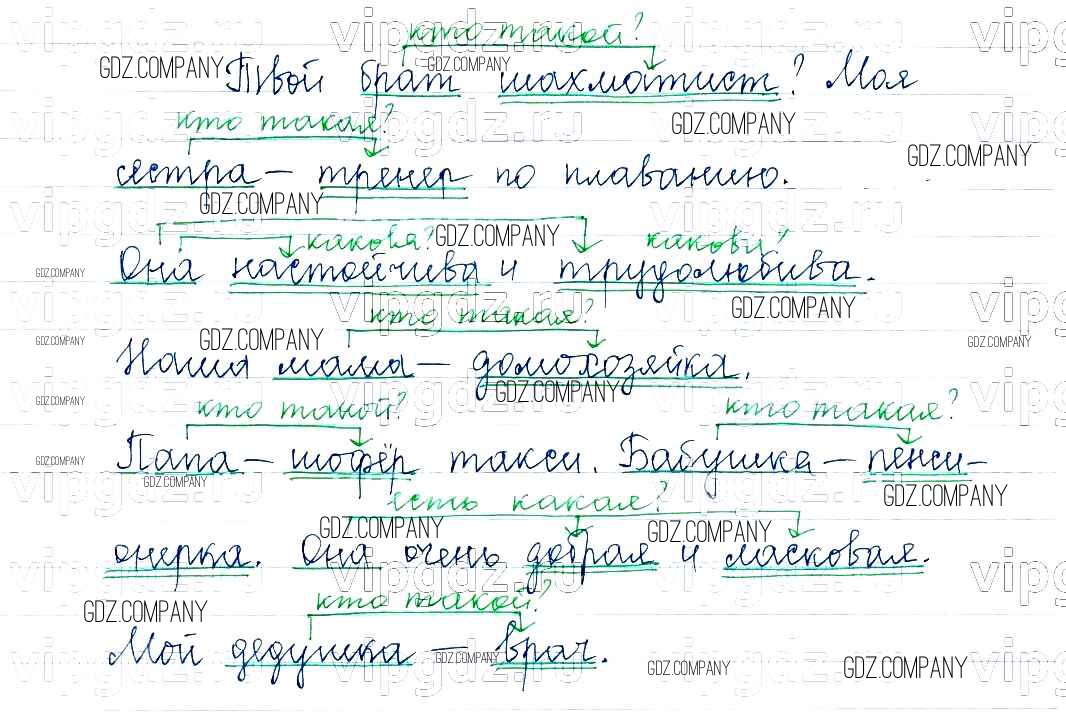 кто такой?
Твой брат шахматист? Моя
кто такая?
сестра — тренер по плаванию.
какова? какова?
Она настойчива и трудолюбива.
кто такая?
Наша мама — домохозяйка.
кто такой? кто такая?
Папа — шофёр такси. Бабушка — пенси-
есть какая?
онерка. Она очень добрая и ласковая.
кто такой?
Мой дедушка — врач.
GDZ.COMPANY
vipgdz.ru